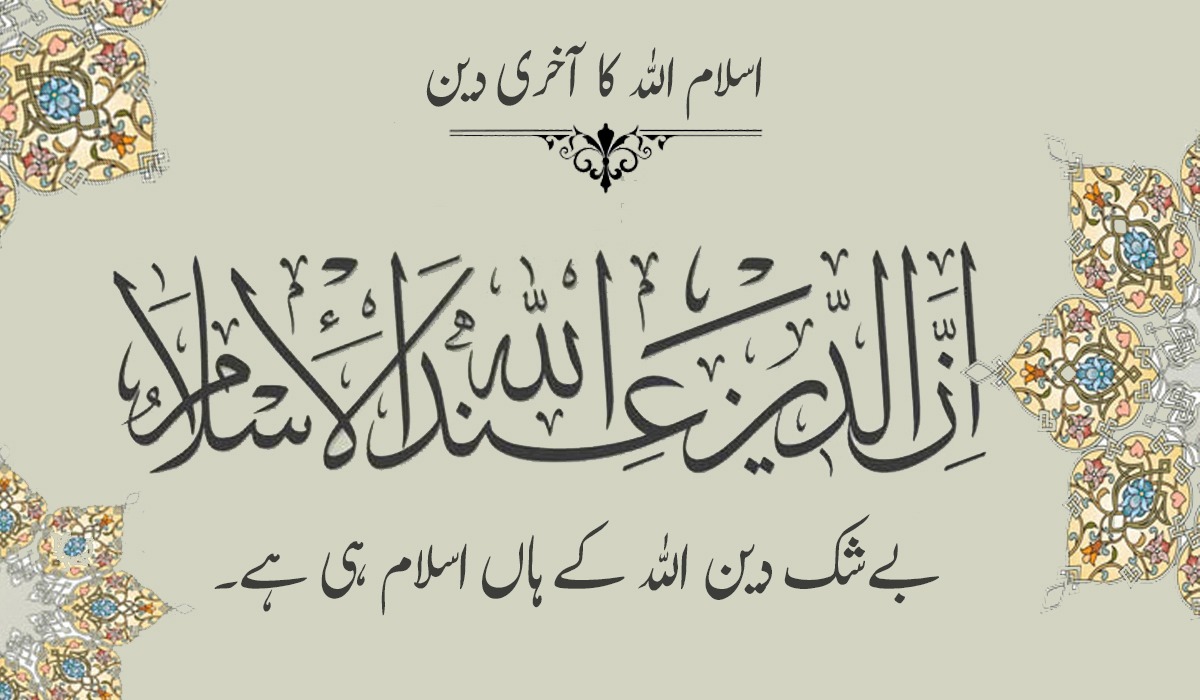 اسلام اللہ کا آخری دین
اِنَّ الدِّیْنَ عِنْدَ اللّٰهِ الْاِسْلَامُ
بےشک دین اللہ کے ہاں اسلام ہی ہے۔